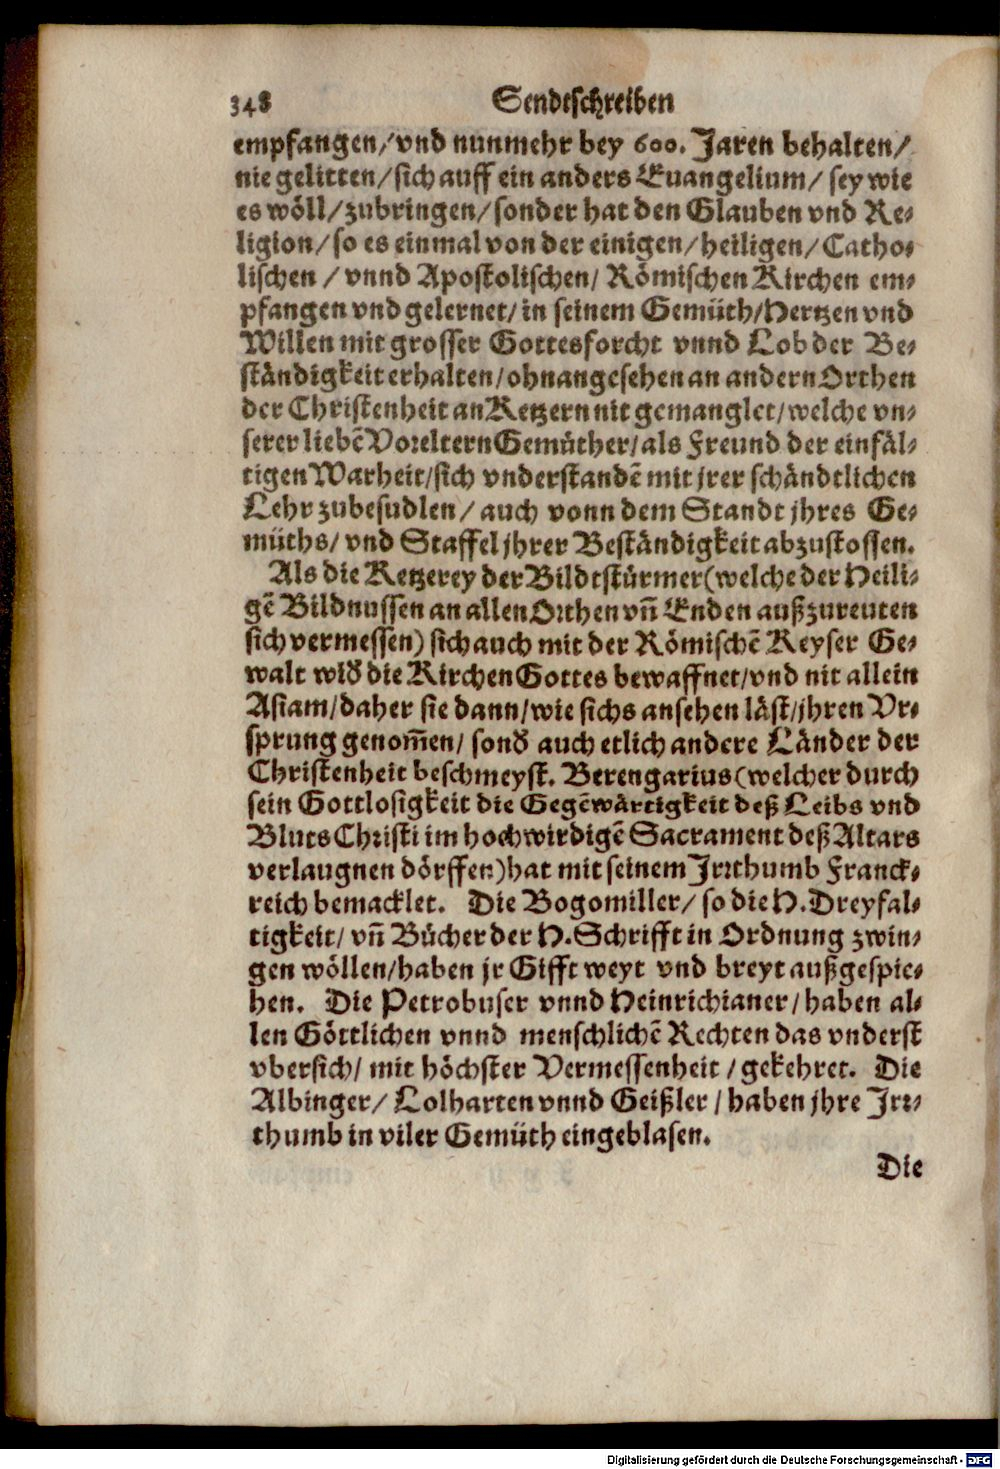 348 Sendtschreiben
empfangen/ vnd nunmehr bey 600. Jaren behalten/
nie gelitten/ sich auff ein anders Euangelium/ sey wie
es wöll/ zubringen/ sonder hat den Glauben vnd Re-
ligion/ so es einmal von der einigen/ heiligen/ Catho-
lischen / vnnd Apostolischen/ Römischen Kirchen em-
pfangen vnd gelernet/ in seinem Gemüth/ Hertzen vnd
Willen mit grosser Gottesforcht vnnd Lob der Be-
ständigkeit erhalten/ ohnangesehen an andern Orthen
der Christenheit an Ketzern nit gemanglet/ welche vn-
serer liebẽ Voreltern Gemüther/ als Freund der einfäl-
tigen Warheit/ sich vnderstandẽ mit jrer schändtlichen
Lehr zubesudlen/ auch vonn dem Standt jhres Ge-
müths/ vnd Staffel jhrer Beständigkeit abzustossen.
Als die Ketzerey der Bildtstürmer (welche der Heili-
gẽ Bildnussen an allen Orthen vñ Enden außzureuten
sich vermessen) sich auch mit der Römischẽ Keyser Ge-
walt wid᷑ die Kirchen Gottes bewaffnet/ vnd nit allein
Asiam/ daher sie dann/ wie sichs ansehen läst/ jhren Vr-
sprung genom̃en/ sond᷑ auch etlich andere Länder der
Christenheit beschmeyst. Berengarius (welcher durch
sein Gottlosigkeit die Gegẽwärtigkeit deß Leibs vnd
Bluts Christi im hochwirdigẽ Sacrament deß Altars
verlaugnen dörffen) hat mit seinem Jrrthumb Franck-
reich bemacklet. Die Bogomiller/ so die H. Dreyfal-
tigkeit/ vñ Bücher der H. Schrifft in Ordnung zwin-
gen wöllen/ haben jr Gifft weyt vnd breyt außgespie-
hen. Die Petrobuser vnnd Heinrichianer/ haben al-
len Göttlichen vnnd menschlichẽ Rechten das vnderst
vbersich/ mit höchster Vermessenheit / gekehret. Die
Albinger/ Lolharten vnnd Geißler / haben jhre Jrr-
thumb in viler Gemüth eingeblasen.
Die
Digitalisierung gefördert durch die Deutsche Forschungsgemeinschaft - DFG